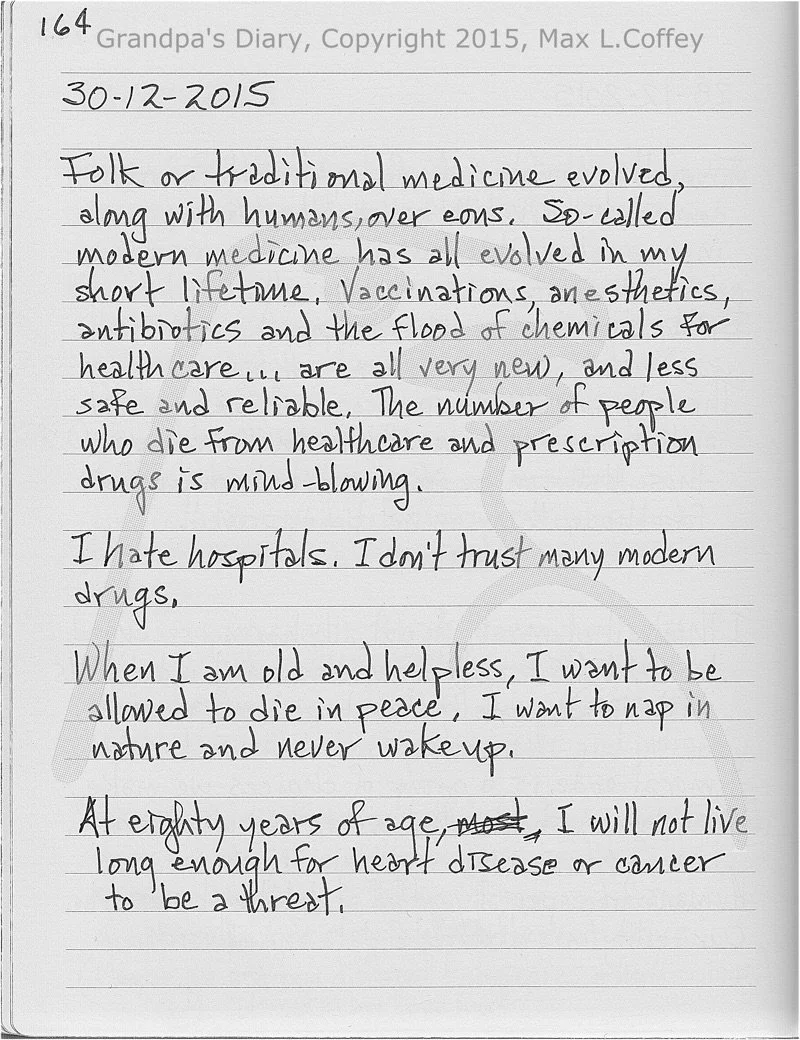 164
Grandpa's Diary, Copyright 2015, Max L.Coffey
30-12-2015
Folk or traditional medicine evolved,
along with humans, over eons. So-called
modern medicine has all evolved in my
short lifetime. Vaccinations, anesthetics,
antibiotics and the flood of chemicals for
healthcare... are all very new, and less
safe and reliable. The number of people
who die from healthcare and prescription
drugs is mind-blowing.
I hate hospitals. I don't trust many modern
drugs.
When I am old and helpless, I want to be
allowed to die in peace. I want to nap in
nature and never wake up.
At eighty years of age, most, I will not live
long enough for heart disease or cancer
to be a threat.